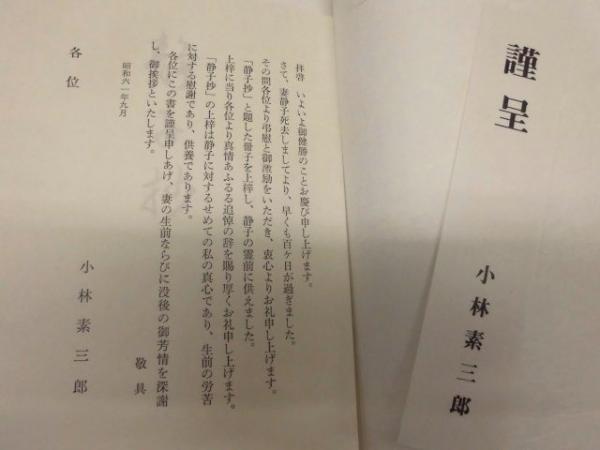 謹呈
小林素三郎
拝啓 いよいよ御健勝のことお慶び申し上げます。
さて、妻静子死去しましてより、早くも百ヶ日が過ぎました。
その間各位より弔慰と御激励をいただき、衷心よりお礼申し上げます。
「静子抄」と題した冊子を上梓し、静子の霊前に供えました。
上梓に当り各位より真情あふるる追悼の辞を賜り厚くお礼申し上げます。
「静子抄」の上梓は静子に対するせめての私の真心であり、生前の労苦
に対する慰謝であり、供養であります。
各位にこの書を謹呈申しあげ、妻の生前ならびに没後の御芳情を深謝
し、御挨拶といたします。
敬具
昭和六一年九月
小林素三郎
各位